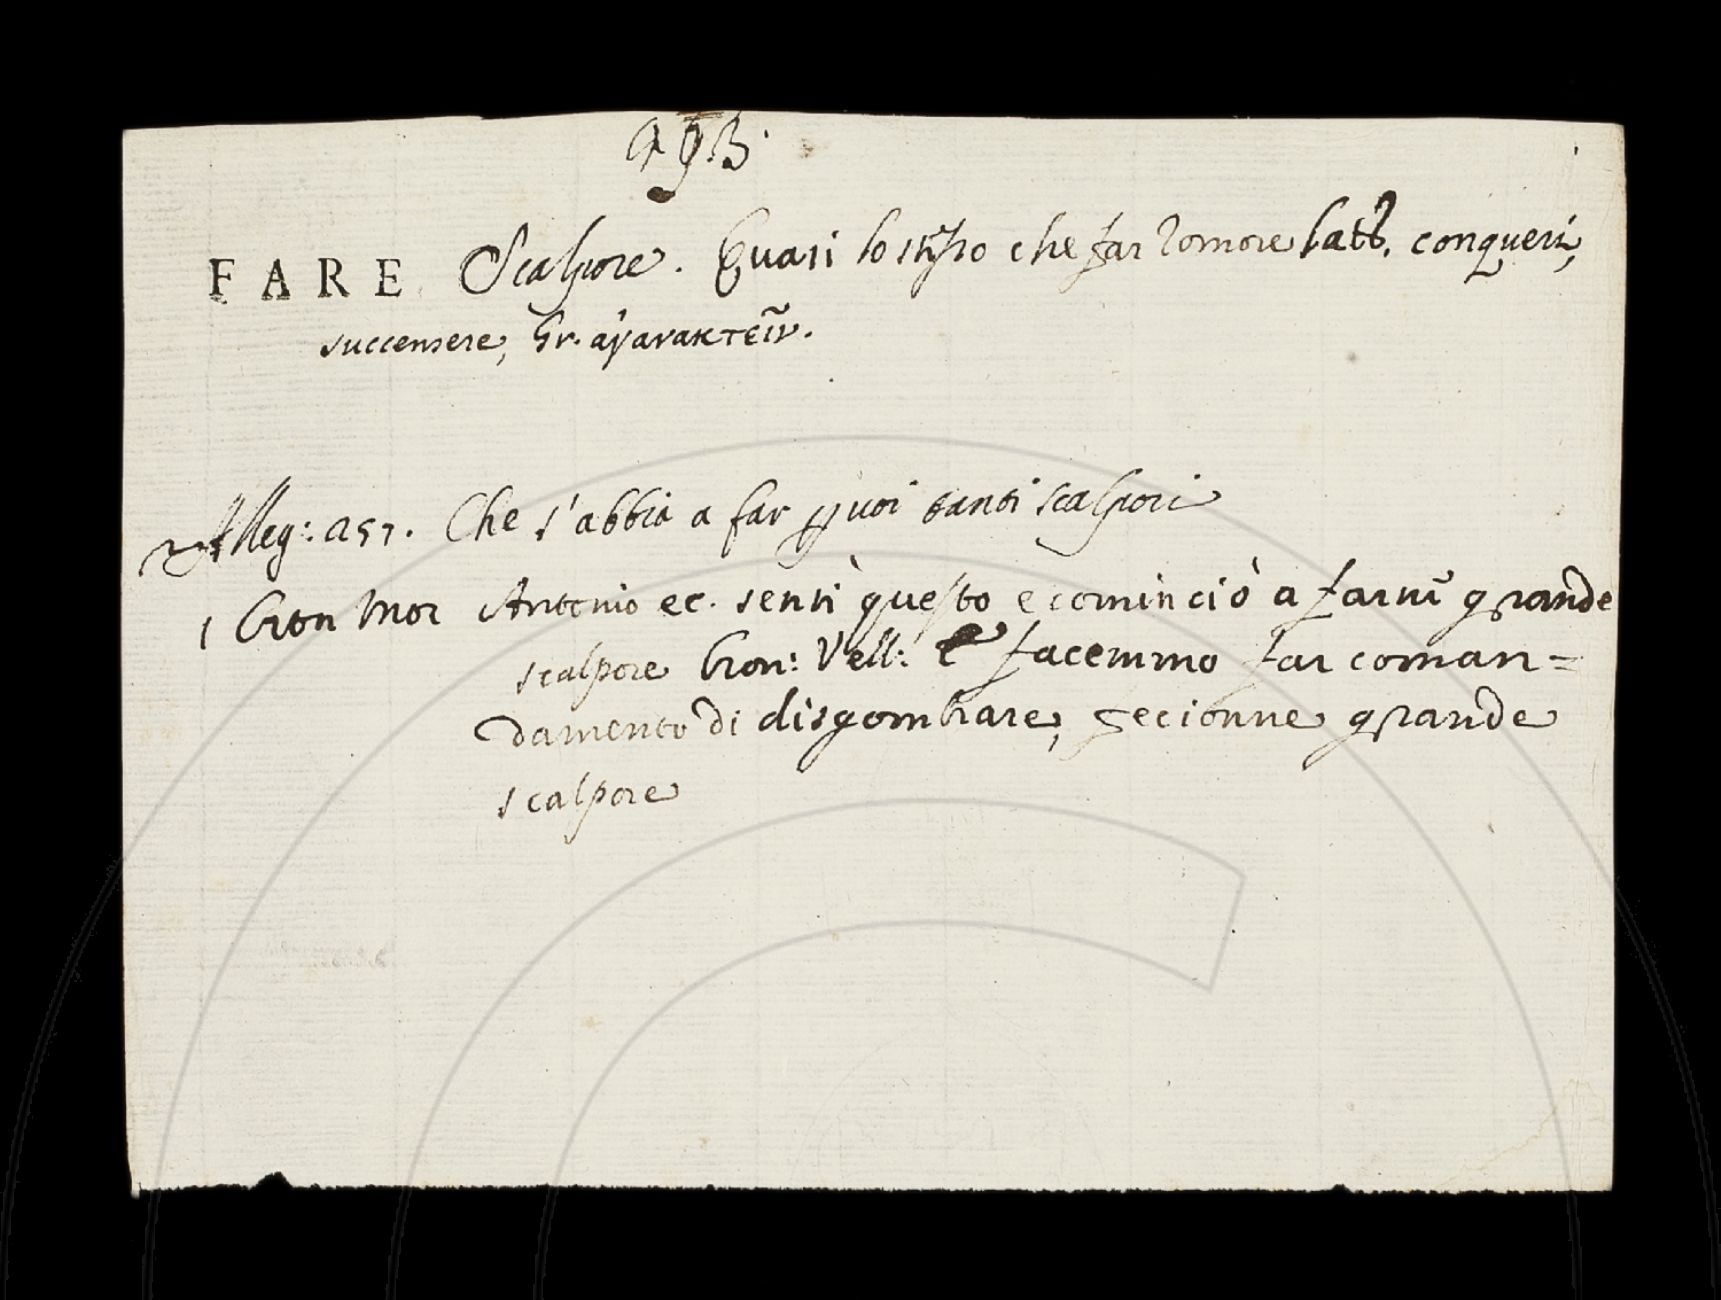 FARE Scalpore. Quasi lo stesso che far romore latt. conqueri,
succensere, Gr. ἀγανακτεῖν.
Alleg: 257. Che s'abbia a far poi tanti scalpori
1 Cron Mor Antonio ec. sentì questo e cominciò a farni grande
scalpore Cron: Vell: E facemmo far coman=
damento di disgombrare, fecionne grande
scalpore